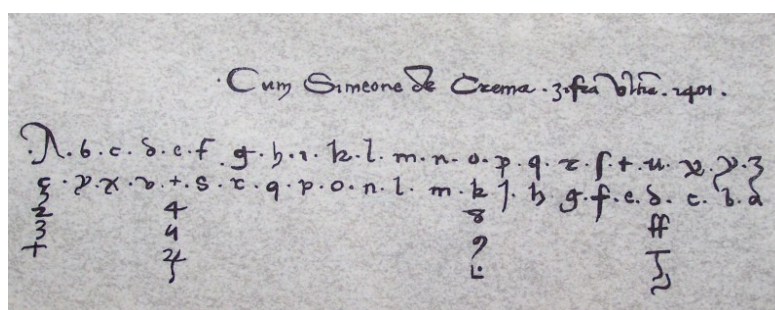 ·Cum Simeone de Crema · 1401 ·
·A·b·c·d·e·f·g·h·i·k·l·m·n·o·p·q·r·ſ·t·u·x·y·z
z·y·x·v·t·s·r·q·p·o·n·l·m·k·j·h·g·f·e·d·c·b·a
2 4 8 ff
3 4
+ 4